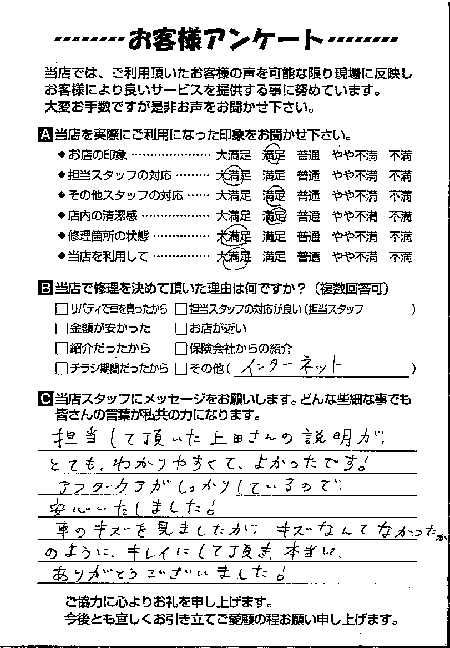 お客様アンケート
当店では、ご利用頂いたお客様の声を可能な限り現場に反映し
お客様により良いサービスを提供する事に努めています。
大変お手数ですが是非お声をお聞かせ下さい。
A 当店を実際にご利用になった印象をお聞かせ下さい。
◆お店の印象 大満足 満足 普通 やや不満 不満
◆担当スタッフの対応 大満足 満足 普通 やや不満 不満
◆その他スタッフの対応 大満足 満足 普通 やや不満 不満
◆店内の清潔感 大満足 満足 普通 やや不満 不満
◆修理箇所の状態 大満足 満足 普通 やや不満 不満
◆当店を利用して 大満足 満足 普通 やや不満 不満
B 当店で修理を決めて頂いた理由は何ですか?(複数回答可)
□リバティで車を買ったから □担当スタッフの対応が良い(担当スタッフ )
□金額が安かった □お店が近い
□紹介だったから □保険会社からの紹介
□チラシ期間だったから □その他( インターネット )
C 当店スタッフにメッセージをお願いします。どんな些細な事でも
皆さんの言葉が私共の力になります。
担当して頂いた上田さんの説明が、
とても、わかりやすくて、よかったです!
アフターケアがしっかりしているので、
安心いたしました!
車のキズを見ましたが、キズなんてなかったか
のように、キレイにして頂き、本当に、
ありがとうございいました!
ご協力に心よりお礼を申し上げます。
今後とも宜しくお引き立てご愛顧の程お願い申し上げます。